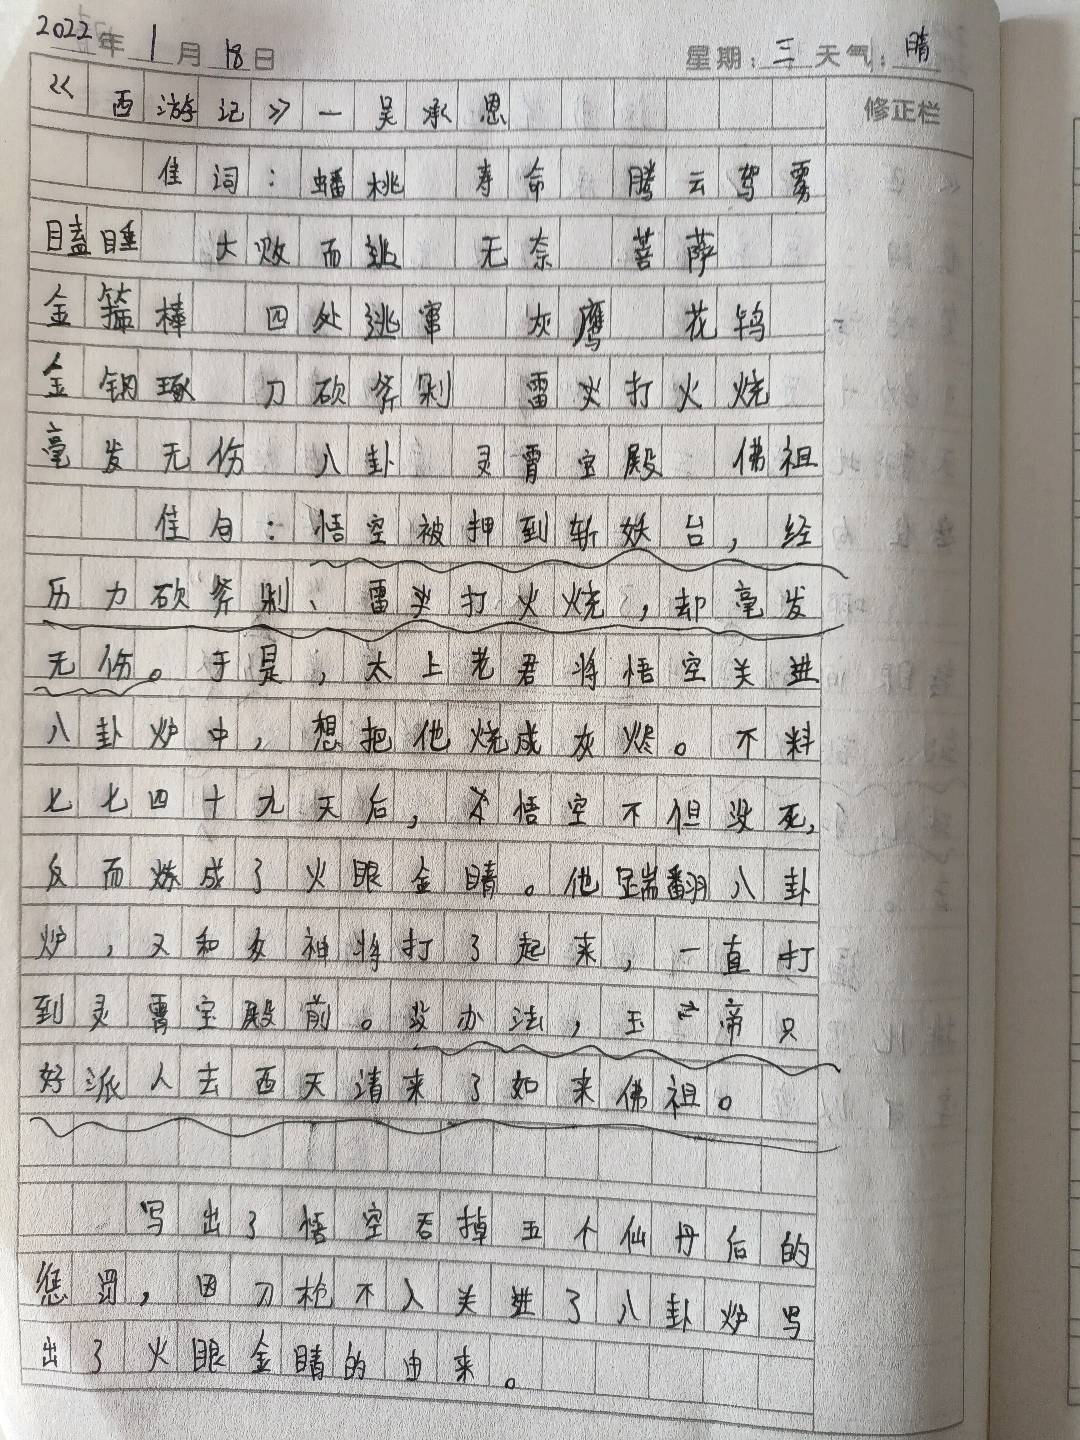 2022年1月18日 星期：三 天气：晴
《西游记》—吴承恩 修正栏
佳词：蟠桃 寿命 腾云驾雾
瞌睡 大败而逃 无奈 菩萨
金箍棒 四处逃窜 灰鹰 花鸨
金钢琢 刀砍斧剁 雷火打火烧
毫发无伤 八卦 灵霄宝殿 佛祖
佳句：悟空被押到斩妖台，经
历力砍斧剁、雷火打火烧，却毫发
无伤。于是，太上老君将悟空关进
八卦炉中，想把他烧成灰烬。不料
七七四十九天后，悟空不但没死，
反而炼成了火眼金睛。他踹翻八卦
炉，又和众神将打了起来，一直打
到灵霄宝殿前。没办法，玉帝只
好派人去西天请来了如来佛祖。
写出了悟空吞掉五个仙丹后的
惩罚，因刀枪不入关进了八卦炉写
出了火眼金睛的由来。